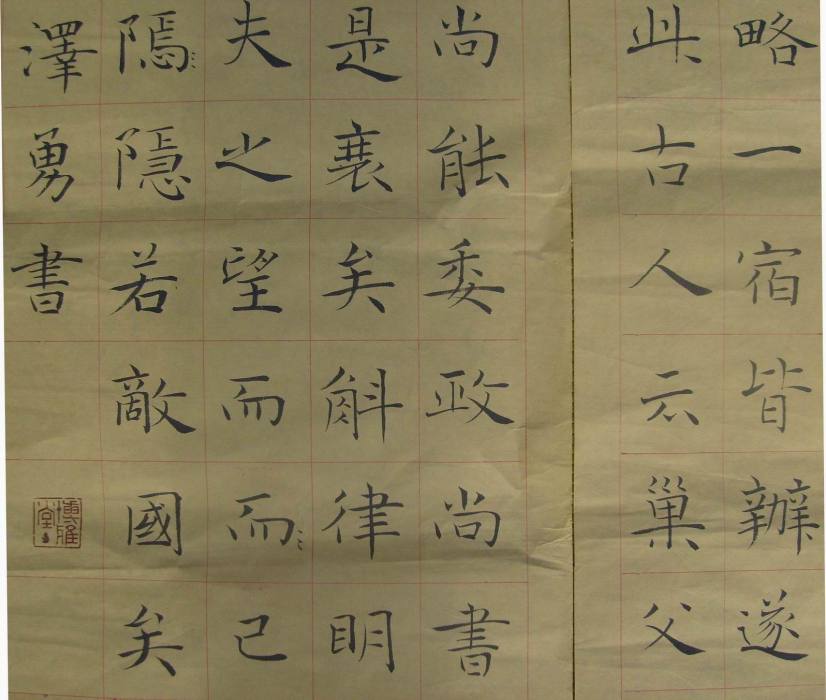 略一宿皆辦遂
此古人云巢父
尚能委政尚書
是衰矣斛律明
夫之望而而已
隱若敵國矣
澤勇書
博雅堂